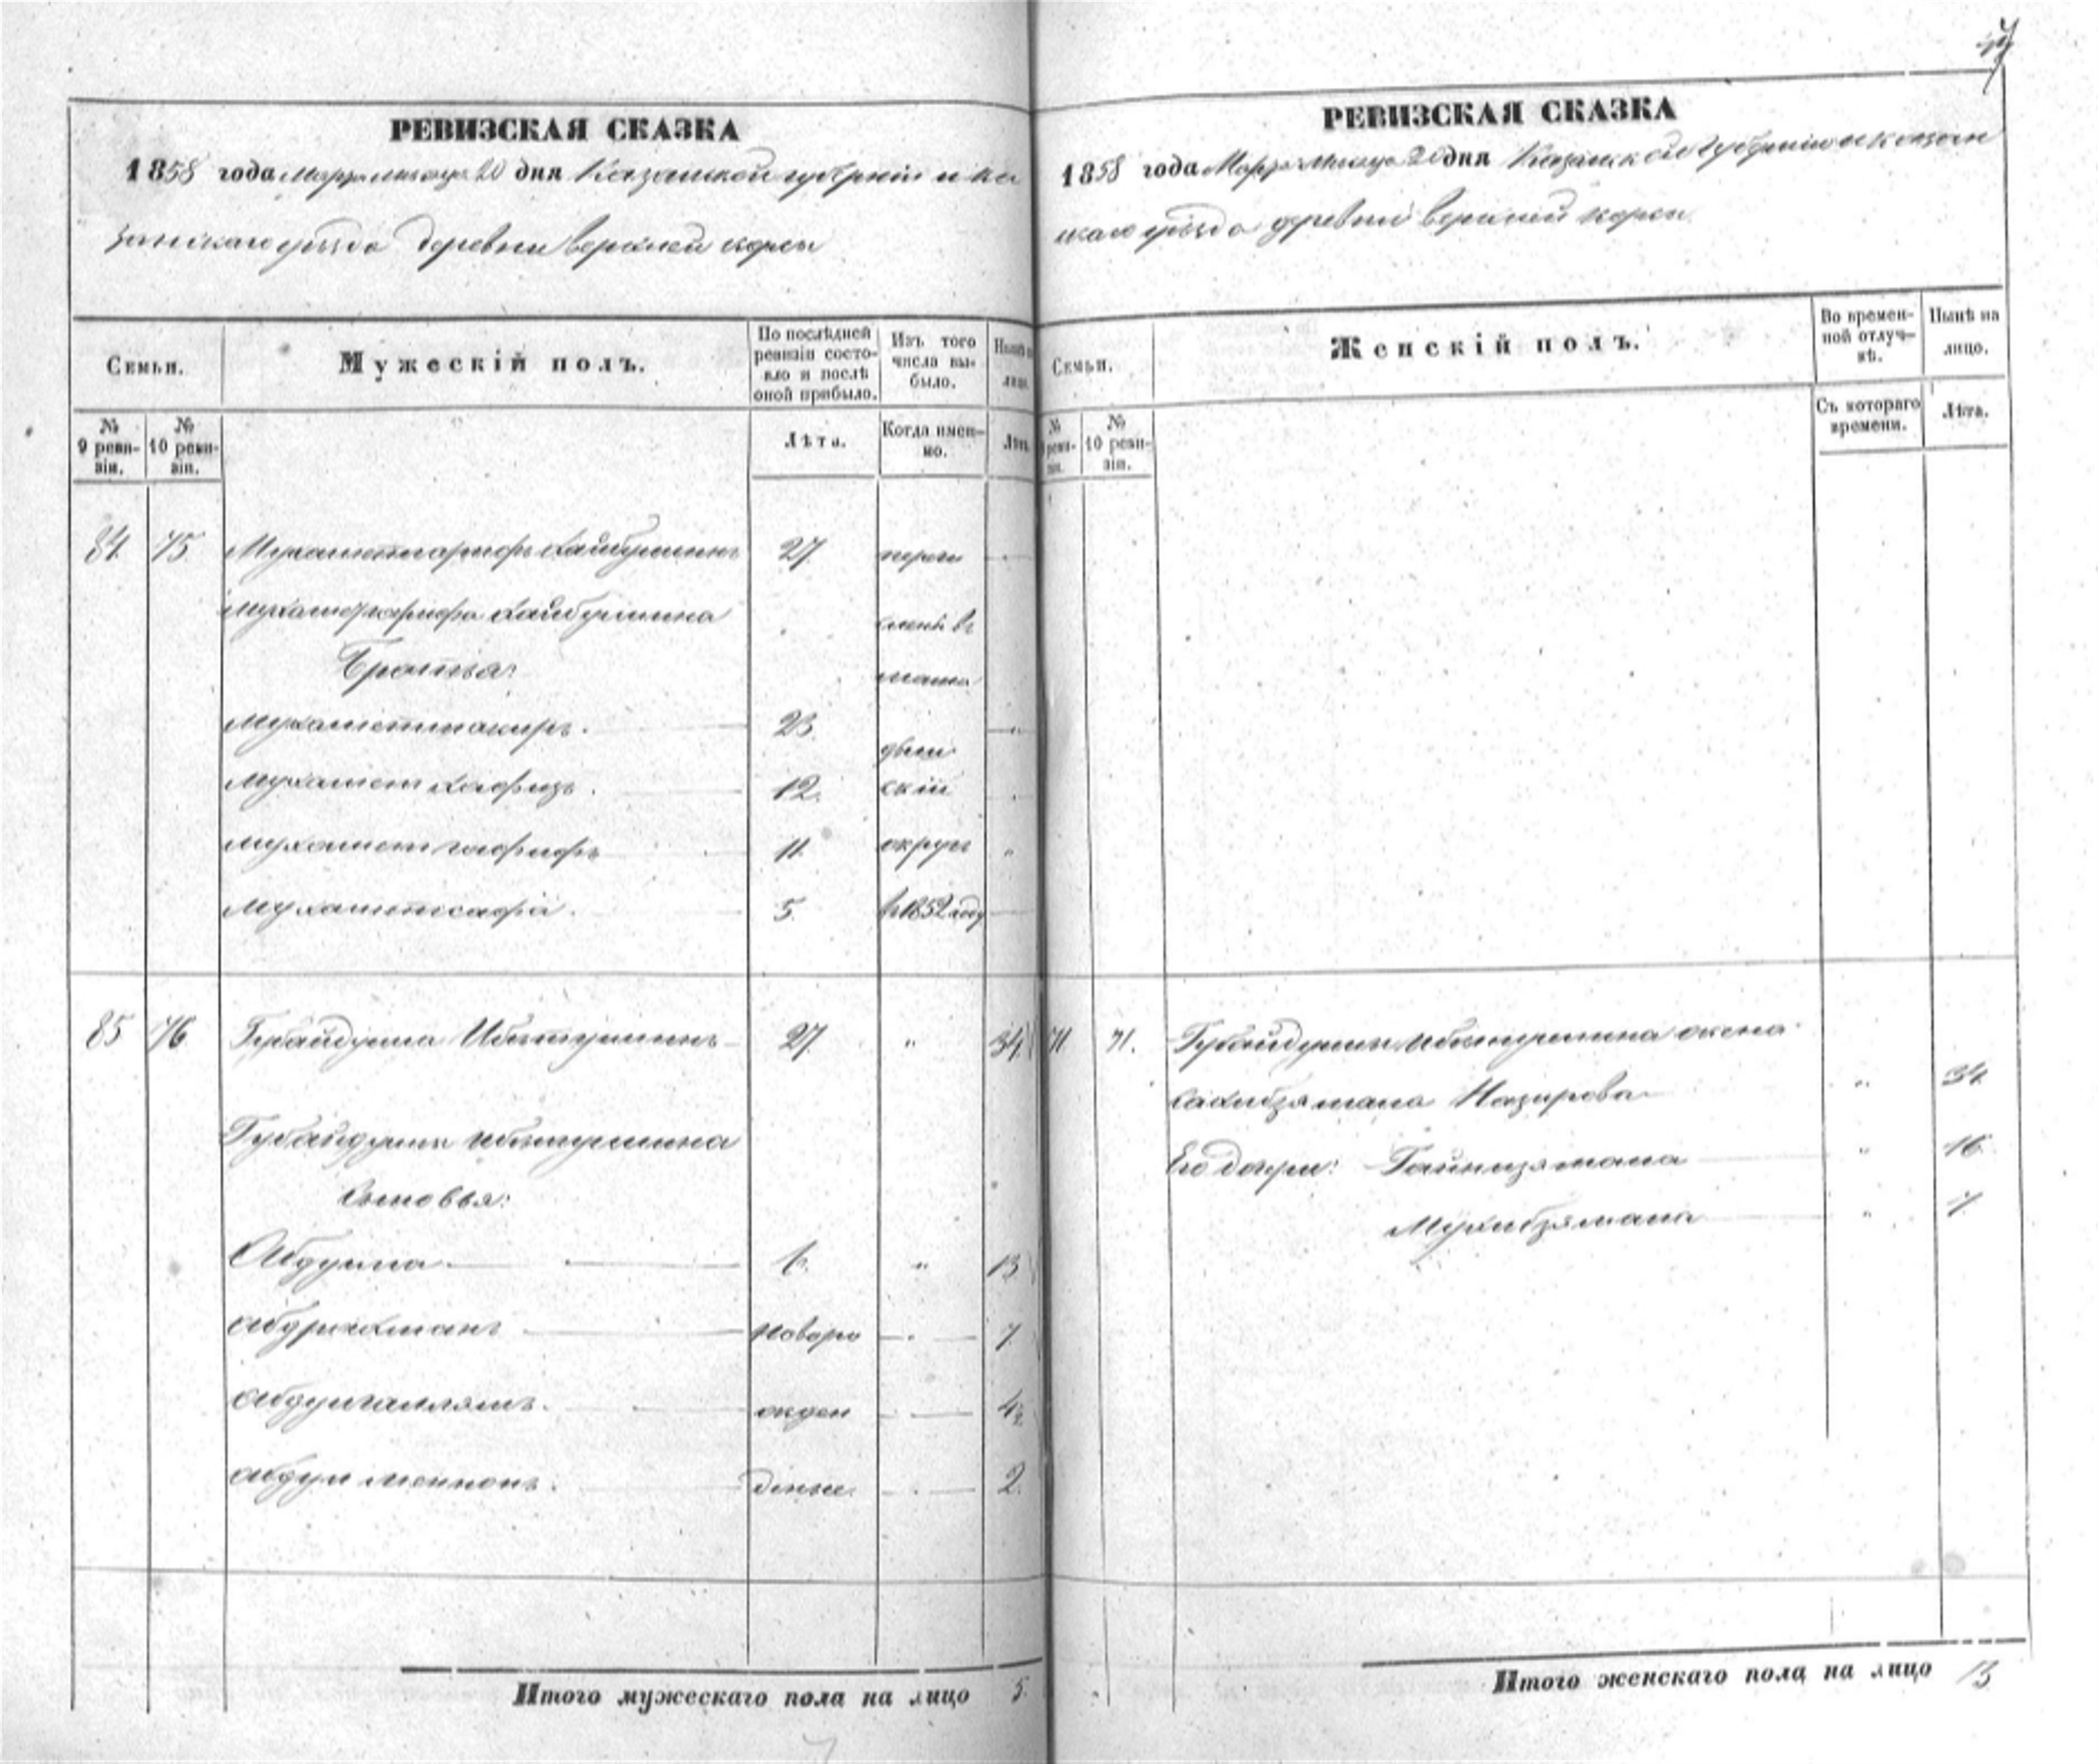 РЕВИЗСКАЯ СКАЗКА
1858 года Марта месяца 20 дня Казанской губернии и Ка
занскаго уѣзда деревни верхней корсы
Семьи.
Мужескій полъ.
По послѣдней ревизіи состо-
яло и послѣ
оной прибыло.
Изъ того
числа вы-
было.
Нынѣ на
лицо.
№
9 реви-
зіи.
№
10 реви-
зіи.
Лѣта.
Когда имен-
но.
Лѣта.
84. 75. Мухаметгарифъ Хайбуллинъ 27. пере
Мухаметгарифа Хайбуллина
сленъ въ
Братья:
мама
Мухаметшакиръ. 23.
дыш
Мухамет хафизъ. 12. скій
Мухамет гафифъ 11. округъ
Мухаметсафа. 5. въ 1852 году
85 76 Губайдулла Ибетуллинъ 27. " 34
Губайдуллы Ибетуллина
Сыновья:
Абдулла 6. " 13
Абдрахманъ новоро 7.
Абдулгаллямъ. жден 4½
Абдул меннонъ. дные. 2.
Итого мужескаго пола на лицо 5.
РЕВИЗСКАЯ СКАЗКА
1858 года Марта месяца 20 дня Казанской губернии и казан
скаго уѣзда деревни верхней корсы
Семьи.
Женскій полъ.
Во времен-
ной отлуч-
кѣ.
Нынѣ на
лицо.
№
9 реви-
зіи.
№
10 реви-
зіи.
Съ котораго
времени.
Лѣта.
71. 71. Губайдуллы Ибетуллина жена
Хахибзямала Назирова " 34.
Его дочери: Гайнизямала " 16.
Мухибзямала " 7.
Итого женскаго пола на лицо 13